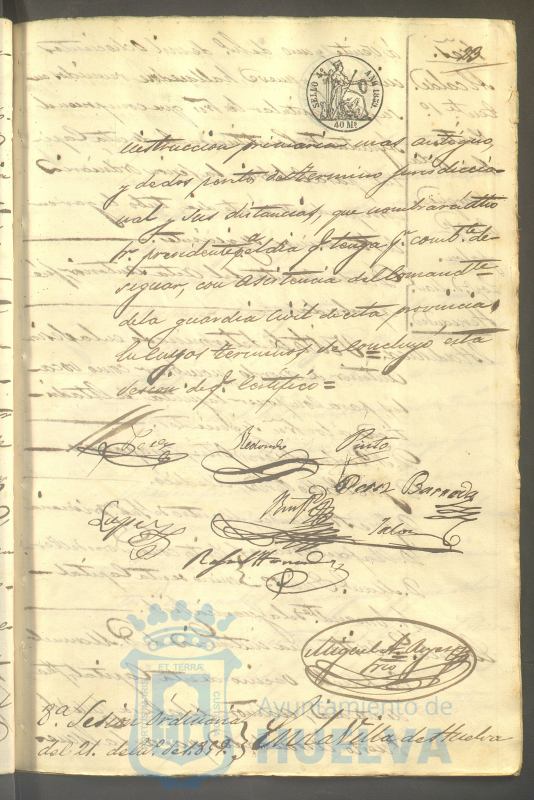 23
SELLO 4º AÑO 1859
40 Ms
instruccion primaria mas antiguo,
y de dos perito del termino jurisdiccio
nal y sus distancias, que nombrará dho
Sr. presidente pª el dia q. tenga pr. combte. de-
signar, con asistencia del Comandte.
de la guardia Civil de esta provincia,
En cuyos terminos se concluyo esta
sesion de q. Certifico=
Redondo Pinto
Perez Barroda
Lopez
Rafael Hernandez
Miguel
8ª Sesion Ordinaria
del 21. de de 1859.
En la Villa de Huelva
ET TERRÆ
Ayuntamiento de
HUELVA